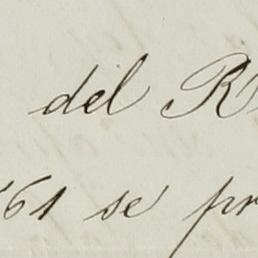 del R
61 se pr